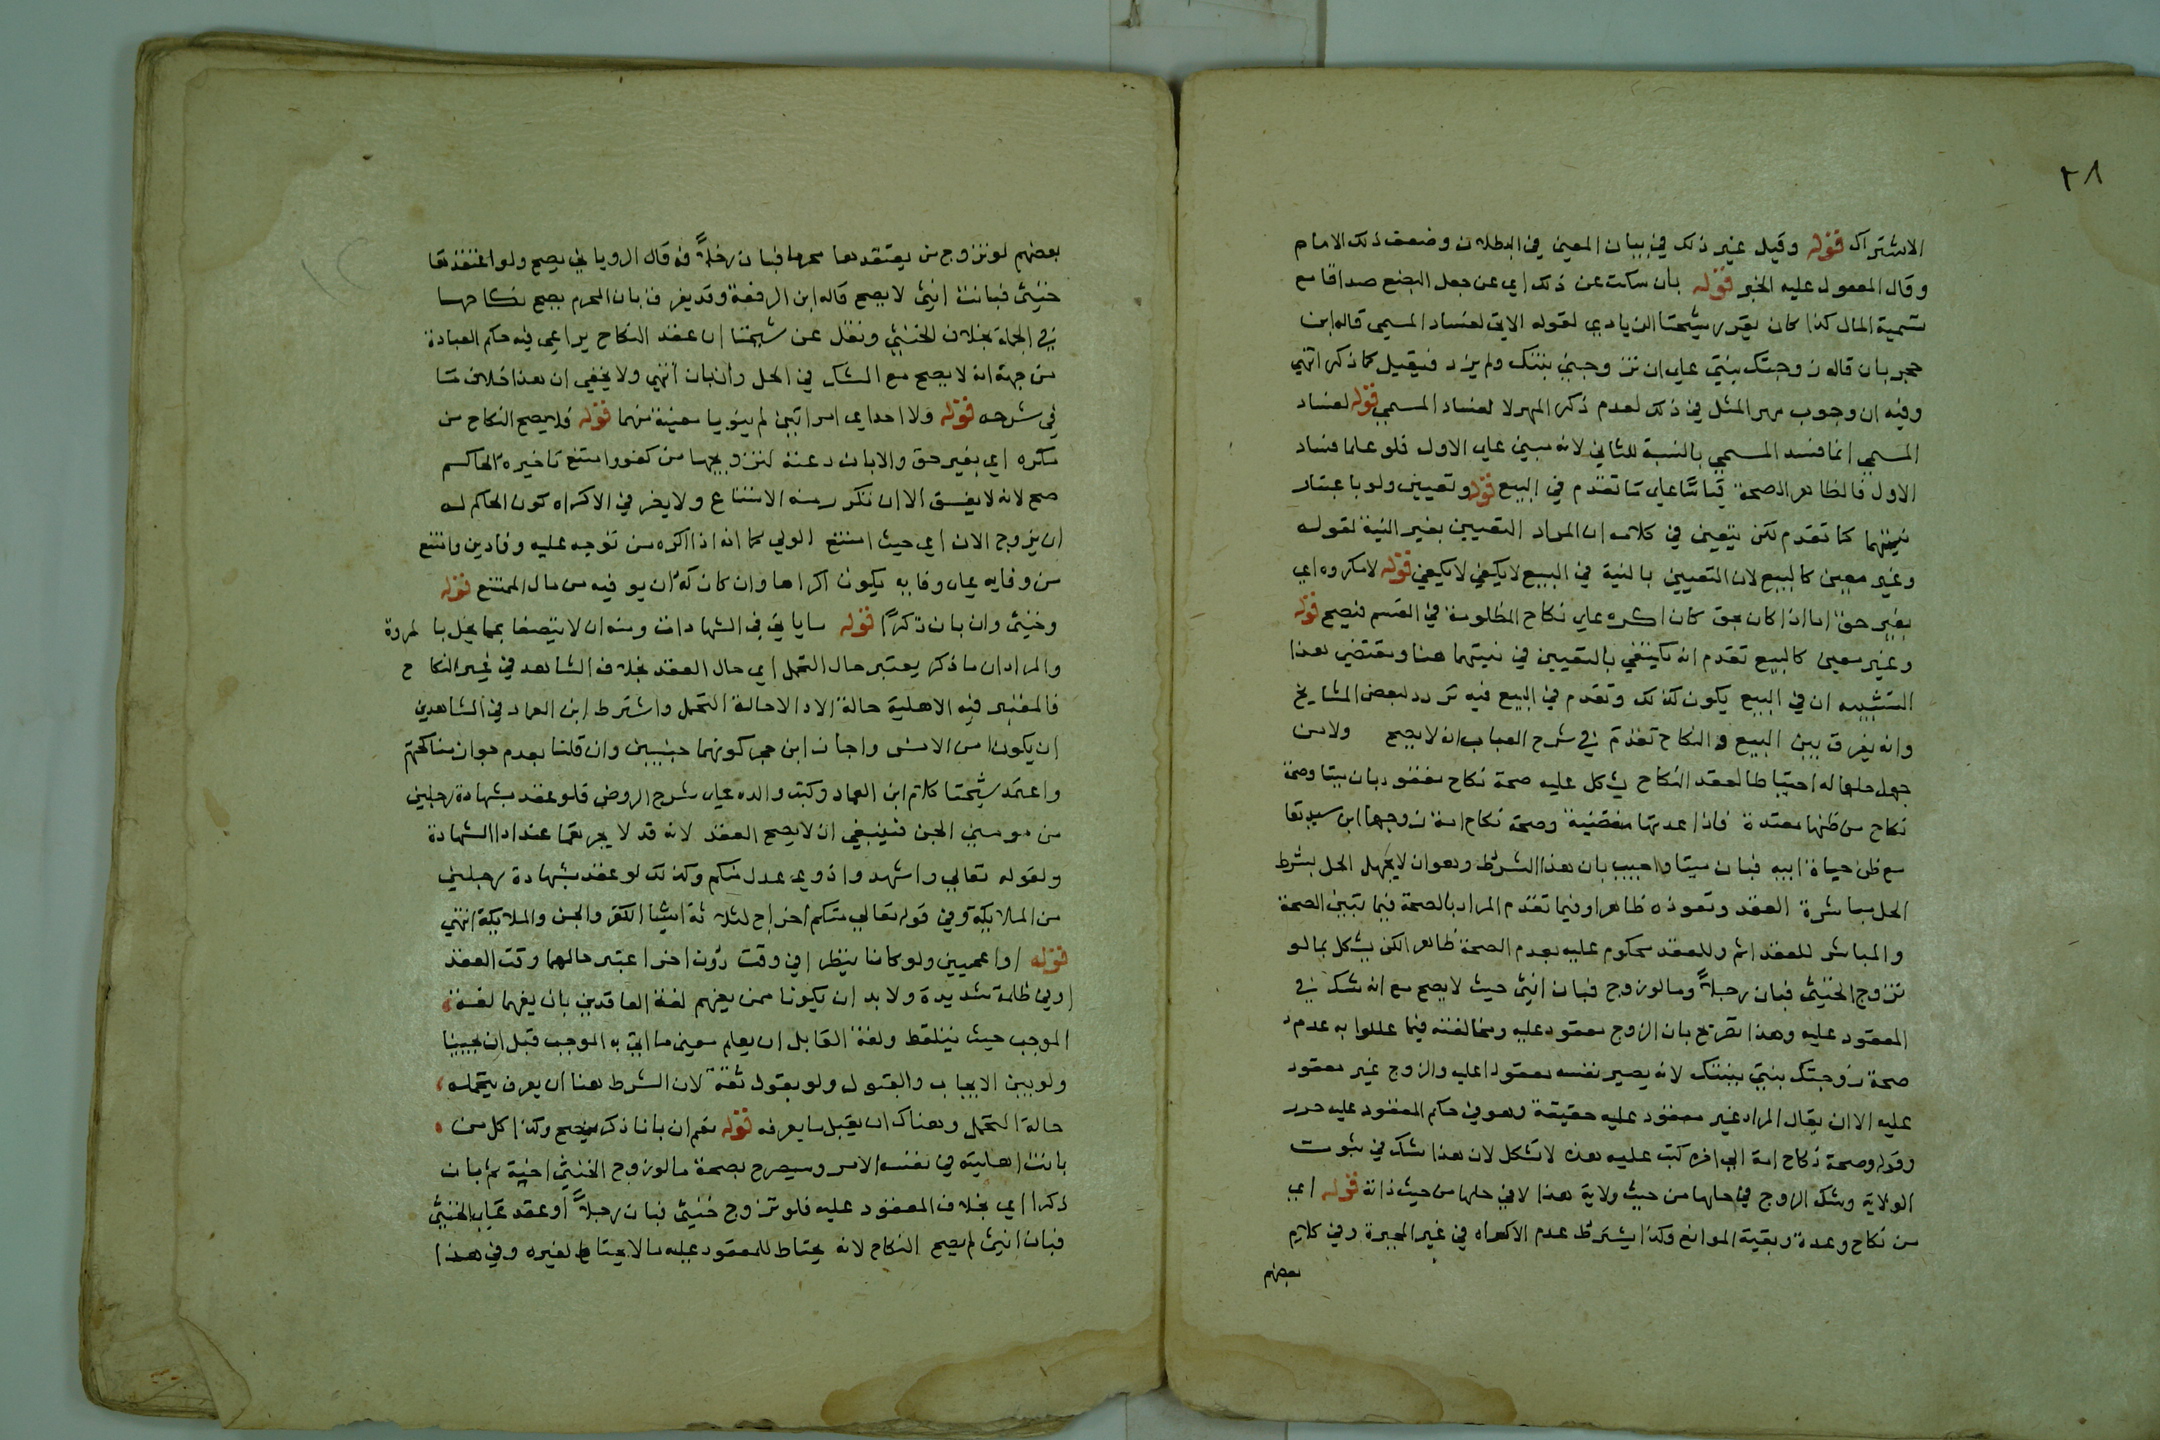 ٢٨
الاشتراك قوله وقيل غير ذلك في بيان المعين في البطلان وضعف ذلك الامام
وقال المعول عليه الخبر قوله بان سكت عن ذلك اي عن جعل البضع صداقا مع
تسمية المال كذا كان يقرر شيخنا الزيادي لقوله الاتي لفساد المسمي قاله ابن
حجر بان قال زوجتك بنتي علي ان تزوجني بنتك ولم يزد فيقبل كما ذكر انتهي
وفيه ان وجوب مهر المثل في ذلك لعدم ذكر المهر لا لفساد المسمي قوله لفساد
المسمي انما فسد المسمي بالنسبة للثاني لانه مبني علي الاول فلو علما فساد
الاول فالظاهر الصحة قياسا علي ما تقدم في البيع قوله وتعيين ولو باعتبار
نيتهما كما تقدم لكن يتعين في كلامه ان المراد التعيين بغير النية لقوله
وغير معين كالبيع لان التعيين بالنية في البيع لا يكفي لا يكفي قوله لا مكروه اي
بغير حق اما اذا كان بحق كان اكره علي نكاح المظلومة في القسم فيصح قوله
وغير معين كالبيع تقدم انه يكتفي بالتعيين في نيتهما هنا ومقتضي هذا
التشبيه ان في البيع يكون كذلك وتقدم في البيع فيه تردد لبعض المشايخ
وانه يفرق بين البيع والنكاح تقدم في شرح العباب ان لا يصح ولا من
جهل حلها له احتياطا لعقد النكاح يشكل عليه صحة نكاح مفقود بان ميتا وصحة
نكاح من ظنها معتدة فاذا عدتها منقضية وصحة نكاح امة زوجها ابن سيدها
مع ظن حياة ابيه فبان ميتا واجيب بان هذا الشرط وهو ان لا يجهل الحل بشرط
الحل مباشرة العقد ونفوذه ظاهرا وفيما تقدم المراد بالصحة فيما تبين الصحة
والمباشر للعقد اثم وللعقد محكوم عليه بعدم الصحة ظاهرا لكن يشكل بما لو
تزوج الخنثي فبان رجلا وما لو زوج فبان انثي حيث لا يصح مع انه شك في
المعقود عليه وهذا تصريح بان الزوج معقود عليه ومخالفته فيما عللوا به عدم
صحة زوجتك بنتي بنتك لانه يصير نفسه معقودا عليه والزوج غير معقود
عليه الا ان يقال المراد غير معقود عليه حقيقة وهو في حكم المعقود عليه حرر
وقوله وصحة نكاح امة الي اخره كتب عليه هذه لا تشكل لان هذا شك في ثبوت
الولاية وشك الزوج في حلها من حيث ولاية هذا لا في حلها من حيث ذاته قوله اي
من نكاح وعدة وبقية الموانع وكذا يشترط عدم الاكراه في غير المجبرة وفي كلام
بعضهم
بعضهم لو تزوج من يعتقدها محرما فبان رجلا فه قال الروياني يصح ولو اعتقدها
خنثي فبانت انثي لا يصح قاله ابن الرفعة وقد يفرق بان المحرم يصح نكاحها
في الجملة بخلاف الخنثي ونقل عن شيخنا ان عقد النكاح يراعي فيه حكم العبادة
من جهة انه لا يصح مع الشك في الحل وان بان انتهي ولا يخفي ان هذا خلاف ما
في شرحه قوله ولا احداي امراتين لم ينويا معينة منهما قوله فلا يصح النكاح من
مكره اي بغير حق والا بان دعته لتزويجها من كفو وامتنع فاجبره الحاكم
صح لانه لا يفسق الا ان تكرر منه الامتناع ولا يضر في الاكراه كون الحاكم له
ان يزوج الان اي حيث امتنع الولي كما انه اذا اكره من توجه عليه وفا دين وامتنع
من وفايه علي وفايه يكون اكراها وان كان له ان يوفيه من مال الممتنع قوله
وخنثي وان بان ذكرا قوله ما ياتي في الشهادات ومنه ان لا يتصفا بما يخل بالمروة
والمراد ان ما ذكر يعتبر حال التحمل اي حال العقد بخلاف الشاهد في غير النكاح
فالمعتبر فيه الاهلية حالة الادا لا حالة التحمل واشترط ابن العماد في الشاهدين
ان يكونا من الانس واجاز ابن حجر كونهما جنيين وان قلنا بعدم جواز مناكحتهم
واعتمد شيخنا كلام ابن العماد وكتب والده علي شرح الروض فلو عقد بشهادة رجلين
من مومني الجن فينبغي ان لا يصح العقد لانه قد لا يجر نفعا عند ادا الشهادة
ولقوله تعالي واشهدوا ذوي عدل منكم وكذلك لو عقد بشهادة رجلين
من الملايكة وفي قوله تعالي منكم اخراج لثلاثة اشيا الكفر والجن والملايكة انتهي
قوله او اعميين ولو كانا ينظرا في وقت دون اخر اعتبر حالهما وقت العقد
او في ظلمة شديدة ولا بد ان يكونا ممن يفهم لغة العاقدين بان يفهما لغة
الموجب حيث يتلفظ ولغة القابل ان يعلم معني ما اتي به الموجب قبل ان يجيبنا
ولو بين الايجاب والقبول ولو بقول ثقة لان الشرط هنا ان يعرف يتحمله
حالة التحمل وهناك ان يقبل ما يعرفه قوله نعم ان بانا ذكرين صح وكذا كل من
بانت اهليته في نفس الامر وسيصرح بصحة ما لو زوج الخنثي اخته ثم بان
ذكرا اي بخلاف المعقود عليه فلو تزوج خنثي فبان رجلا او عقد علي الخنثي
فبان انثي لم يصح النكاح لانه يحتاط للمعقود عليه ما لا يحتاط لغيره وفي هذا